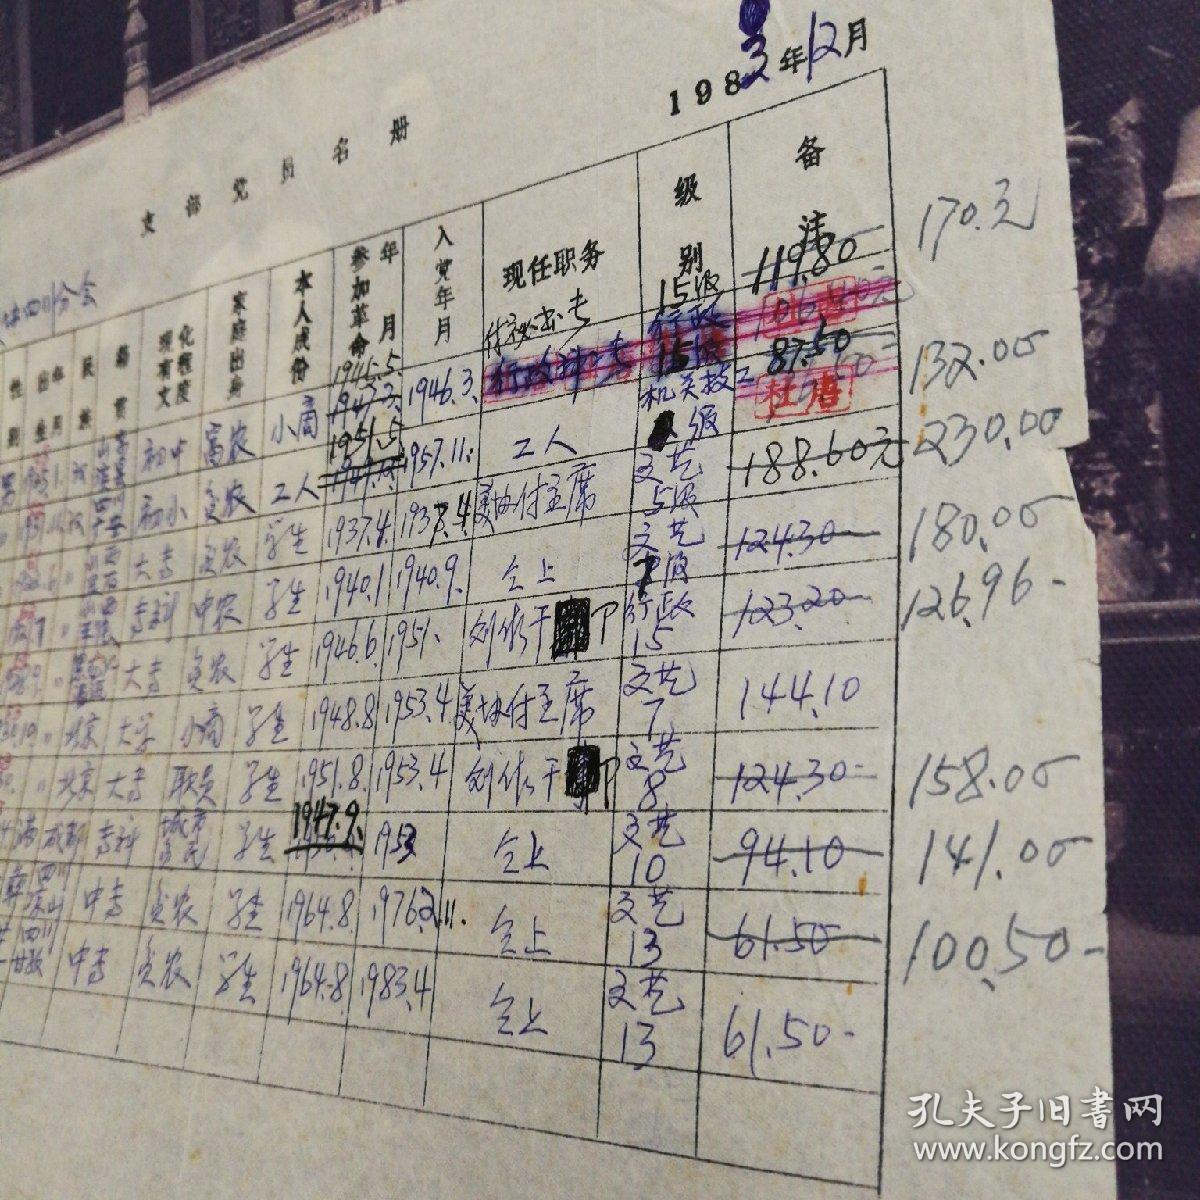 1983年12月
支部党员名册
四川分会
性别
出生年月
民族
籍贯
现有文化程度
家庭出身
本人成份
参加革命年月
入党年月
现任职务
级别
备注
初中 富农 小商 1945.5. 1946.3. 付秘书长 15级 行政 119.80 170.元
初小 贫农 工人 1951.5 1957.11. 工人 机关技工 级 87.50 132.00
杜浩
大专 贫农 学生 1937.4. 1937.4 美协付主席 文艺 5级 188.60元 230.00
专科 中农 学生 1940.1 1940.9. 仝上 文艺 7级 124.30- 180.00
大专 贫农 学生 1946.6. 1951. 创作干 行政 15 123.20- 126.96-
北京 大学 小商 学生 1948.8 1953.4 美协付主席 文艺 7 144.10
北京 大专 职员 学生 1951.8. 1953.4 创作干 文艺 8 124.30- 158.00
满 成都 专科 城市贫民 学生 1947.9. 1953 仝上 文艺 10 94.10- 141.00
四川 中专 贫农 学生 1964.8. 1976.2.11. 仝上 文艺 13 61.50- 100.50-
四川 中专 贫农 学生 1964.8 1983.4 仝上 文艺 13 61.50-
孔夫子旧书网
www.kongfz.com